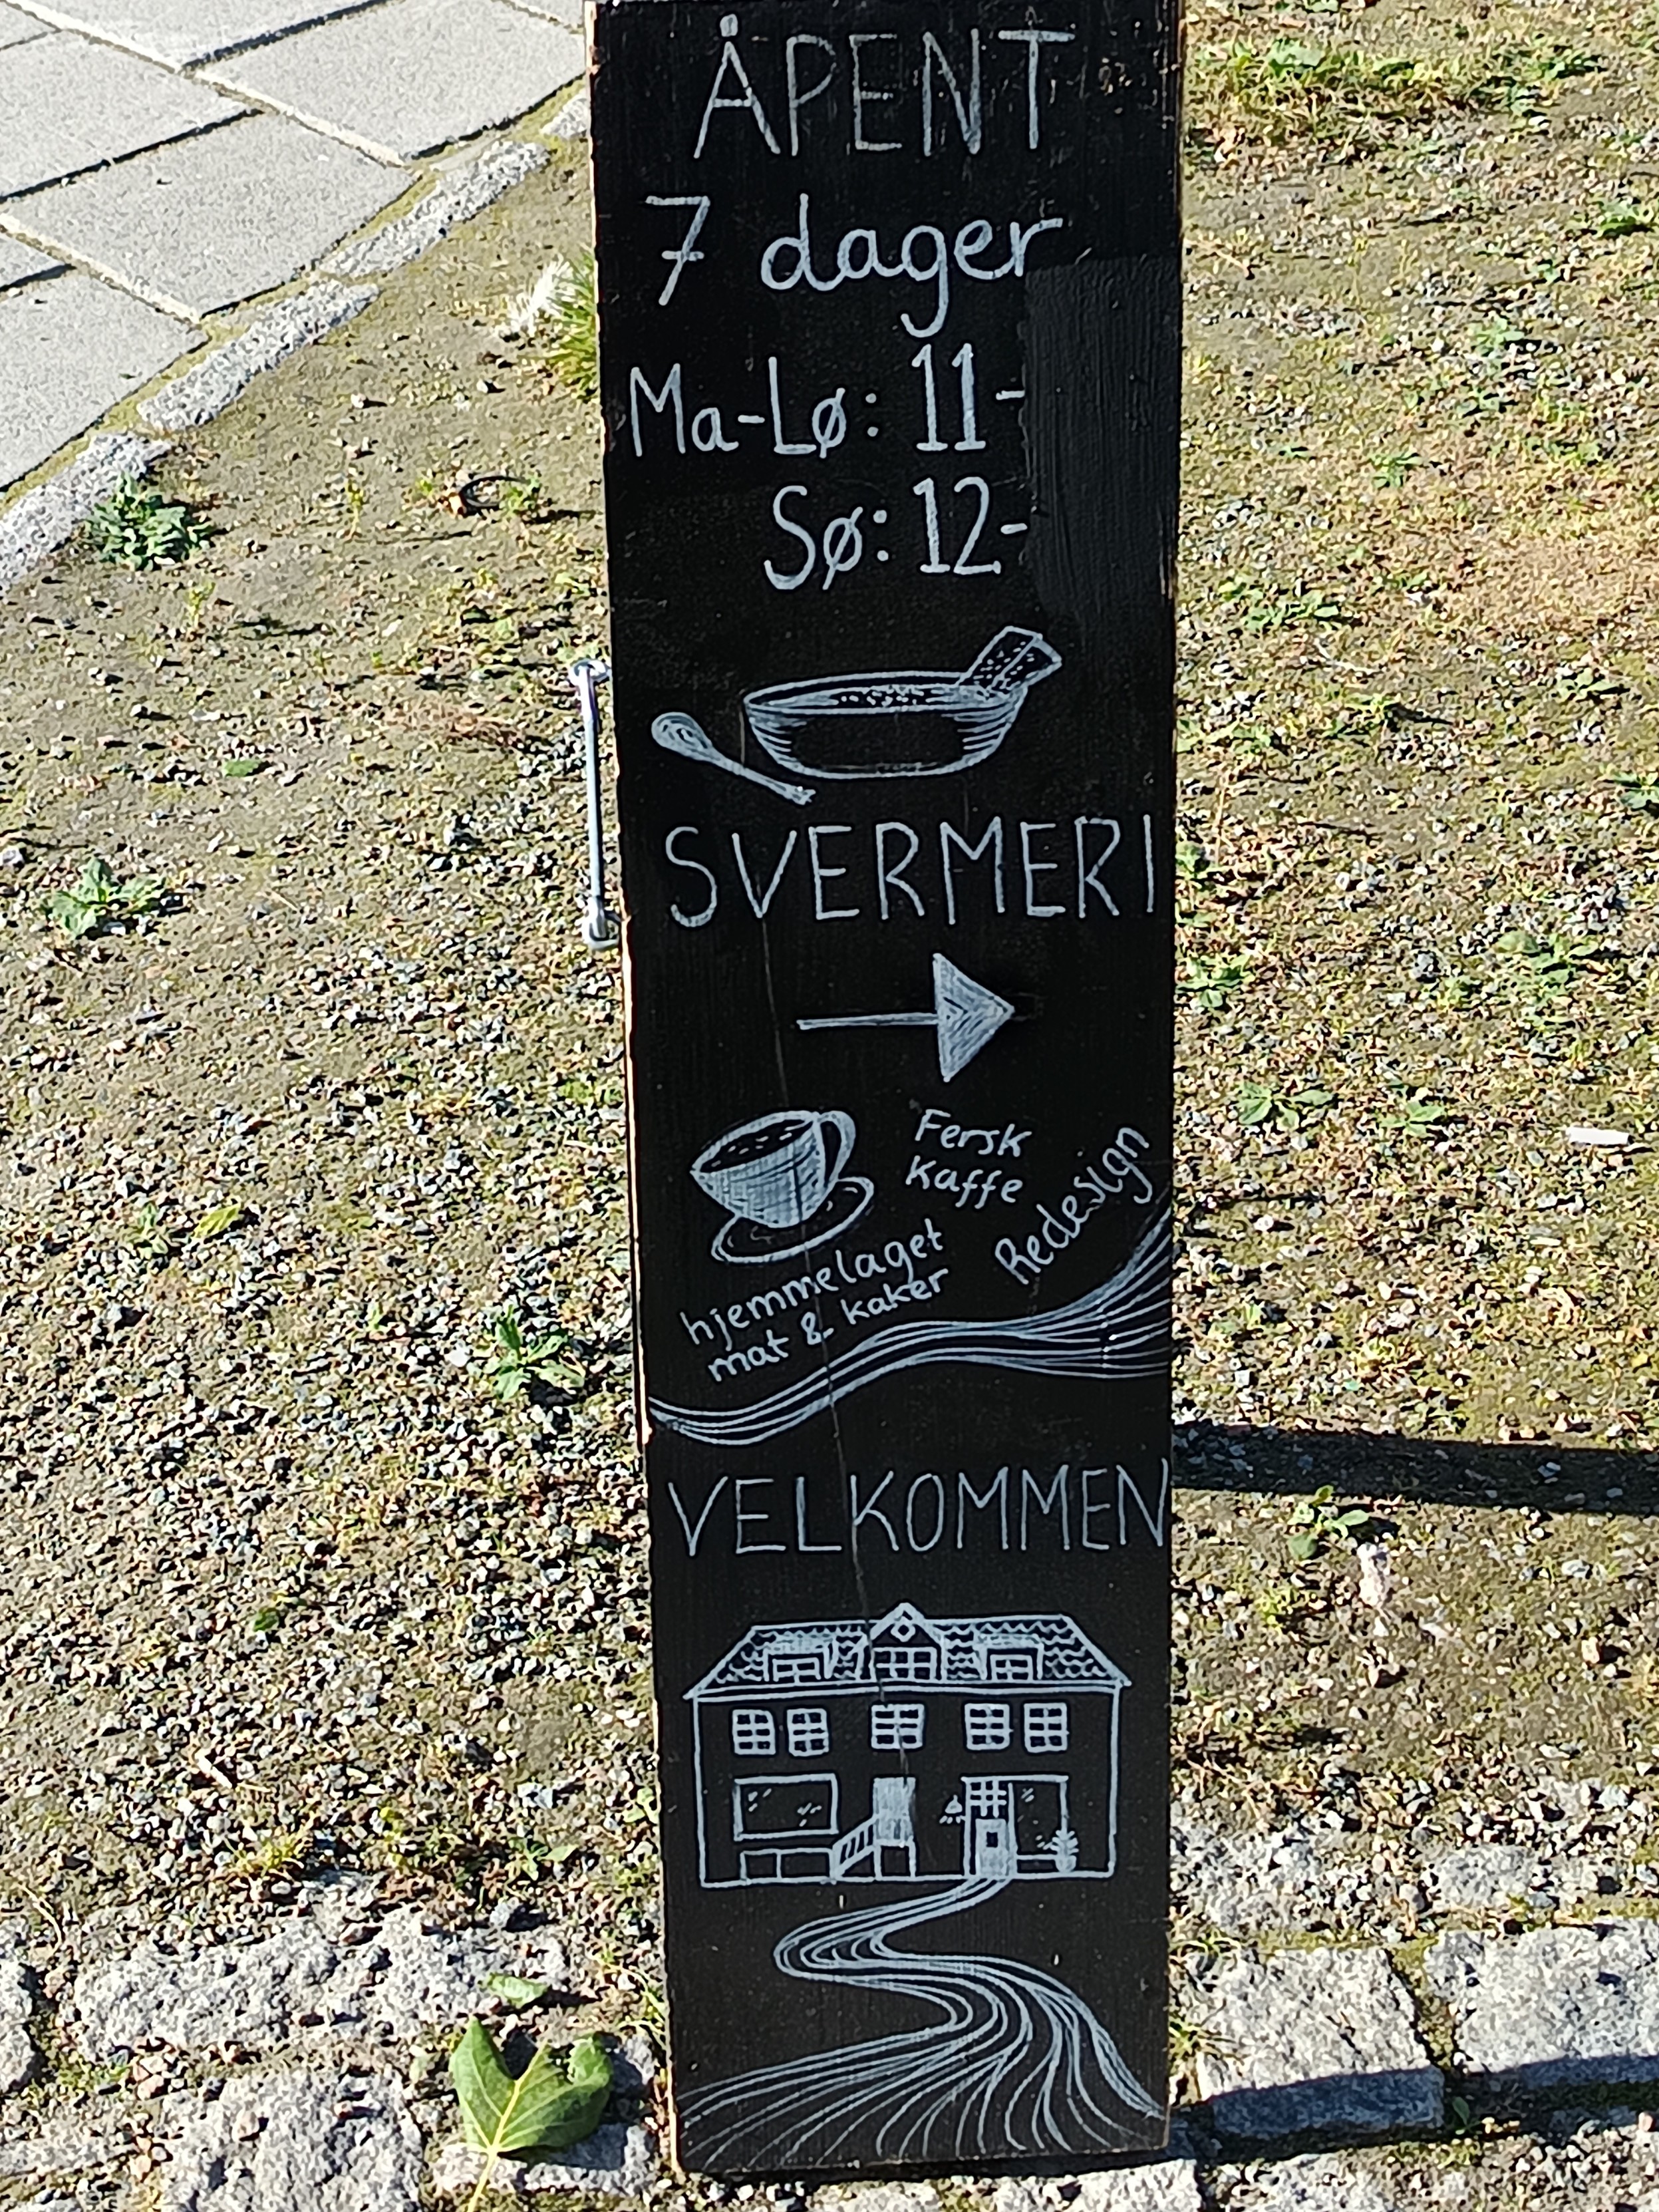 ÅPENT
7 dager
Ma-Lø: 11-
Sø: 12-
SVERMERI
Fersk
Kaffe
Redesign
hjemmelaget
mat & kaker
VELKOMMEN